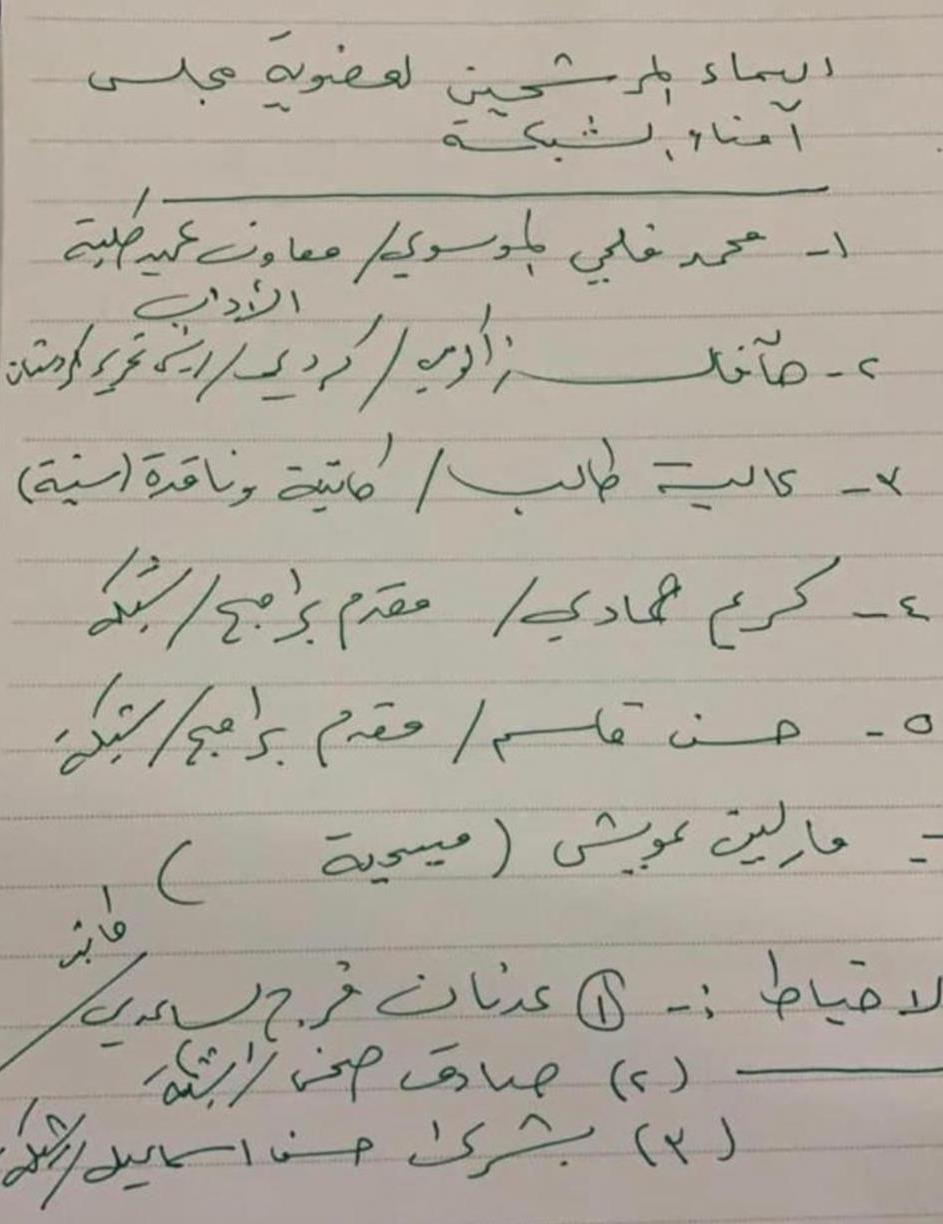 اسماء المرشحين لعضوية مجلس
أمناء الشبكة
١- محمد فلحي الموسوي / معاون عميد كلية
الآداب
٢- / كردي / تحرير كردستان
٣- عالية طالب / كاتبة وناقدة (سنية)
٤- كريم حمادي / مقدم برامج / شبكة
٥- حسن قاسم / مقدم برامج / شبكة
- مارلين عويش (مسيحية)
لاحتياط :- ① عدنان فرج الساعدي /
(٢) صادق / الشبكة
(٣) بشرى حسن اسماعيل / شبكة